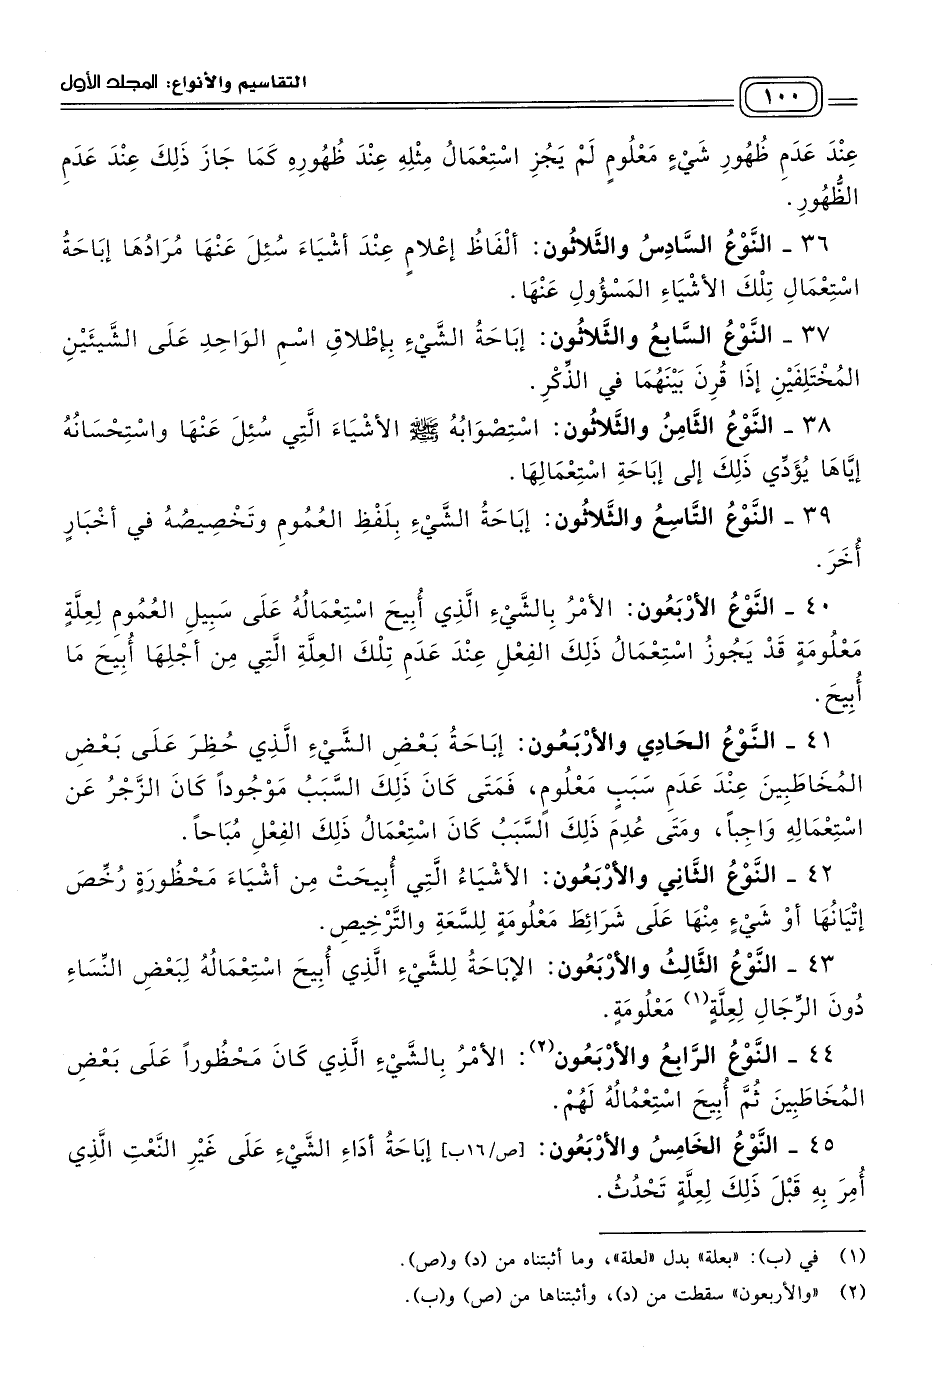 التقاسيم والأنواع: المجلد الأول
١٠٠
عِنْدَ عَدَمِ ظُهُورِ شَيْءٍ مَعْلُومٍ لَمْ يَجُزِ اسْتِعْمَالُ مِثْلِهِ عِنْدَ ظُهُورِهِ كَمَا جَازَ ذَلِكَ عِنْدَ عَدَمِ
الظُّهُورِ.
٣٦ ـ النَّوْعُ السَّادِسُ والثَّلاثُون: ألْفَاظُ إعْلامٍ عِنْدَ أشْيَاءَ سُئِلَ عَنْهَا مُرَادُهَا إبَاحَةُ
اسْتِعْمَالِ تِلْكَ الأشْيَاءِ المَسْؤُولِ عَنْهَا.
٣٧ ـ النَّوْعُ السَّابِعُ والثَّلاثُون: إبَاحَةُ الشَّيْءِ بِإطْلاقِ اسْمِ الوَاحِدِ عَلَى الشَّيئَيْنِ
المُخْتَلِفَيْنِ إذَا قُرِنَ بَيْنَهُمَا في الذِّكْرِ.
٣٨ ـ النَّوْعُ الثَّامِنُ والثَّلاثُون: اسْتِصْوَابُهُ ﷺ الأشْيَاءَ الَّتِي سُئِلَ عَنْهَا واسْتِحْسَانُهُ
إيَّاهَا يُؤَدِّي ذَلِكَ إلى إبَاحَةِ اسْتِعْمَالِهَا.
٣٩ ـ النَّوْعُ التَّاسِعُ والثَّلاثُون: إبَاحَةُ الشَّيْءِ بِلَفْظِ العُمُومِ وتَخْصِيصُهُ في أخْبَارٍ
أُخَرَ.
٤٠ ـ النَّوْعُ الأرْبَعُون: الأمْرُ بِالشَّيْءِ الَّذِي أُبِيحَ اسْتِعْمَالُهُ عَلَى سَبِيلِ العُمُومِ لِعِلَّةٍ
مَعْلُومَةٍ قَدْ يَجُوزُ اسْتِعْمَالُ ذَلِكَ الفِعْلِ عِنْدَ عَدَمِ تِلْكَ العِلَّةِ الَّتِي مِن أجْلِهَا أُبِيحَ مَا
أُبِيحَ.
٤١ ـ النَّوْعُ الحَادِي والأرْبَعُون: إبَاحَةُ بَعْضِ الشَّيْءِ الَّذِي حُظِرَ عَلَى بَعْضِ
المُخَاطَبِينَ عِنْدَ عَدَمِ سَبَبٍ مَعْلُومٍ، فَمَتَى كَانَ ذَلِكَ السَّبَبُ مَوْجُوداً كَانَ الزَّجْرُ عَن
اسْتِعمَالِهِ وَاجِباً، ومَتَى عُدِمَ ذَلِكَ السَّبَبُ كَانَ اسْتِعْمَالُ ذَلِكَ الفِعْلِ مُبَاحاً.
٤٢ ـ النَّوْعُ الثَّانِي والأرْبَعُون: الأشْيَاءُ الَّتِي أُبِيحَتْ مِن أشْيَاءَ مَحْظُورَةٍ رُخِّصَ
إتْيَانُهَا أوْ شَيْءٍ مِنْهَا عَلَى شَرَائِطَ مَعْلُومَةٍ لِلسَّعَةِ والتَّرْخِيصِ.
٤٣ ـ النَّوْعُ الثَّالِثُ والأرْبَعُون: الإبَاحَةُ لِلشَّيْءِ الَّذِي أُبِيحَ اسْتِعْمَالُهُ لِبَعْضِ النِّسَاءِ
دُونَ الرِّجَالِ لِعِلَّةٍ(١) مَعْلُومَةٍ.
٤٤ ـ النَّوْعُ الرَّابِعُ والأرْبَعُون(٢): الأمْرُ بِالشَّيْءِ الَّذِي كَانَ مَحْظُوراً عَلَى بَعْضِ
المُخَاطَبِينَ ثُمَّ أُبِيحَ اسْتِعْمَالُهُ لَهُمْ.
٤٥ ـ النَّوْعُ الخَامِسُ والأرْبَعُون: [ص/١٦ب] إبَاحَةُ أدَاءِ الشَّيْءِ عَلَى غَيْرِ النَّعْتِ الَّذِي
أُمِرَ بِهِ قَبْلَ ذَلِكَ لِعِلَّةٍ تَحْدُثُ.
(١) في (ب): «بعلة» بدل «لعلة»، وما أثبتناه من (د) و(ص).
(٢) «والأربعون» سقطت من (د)، وأثبتناها من (ص) و(ب).